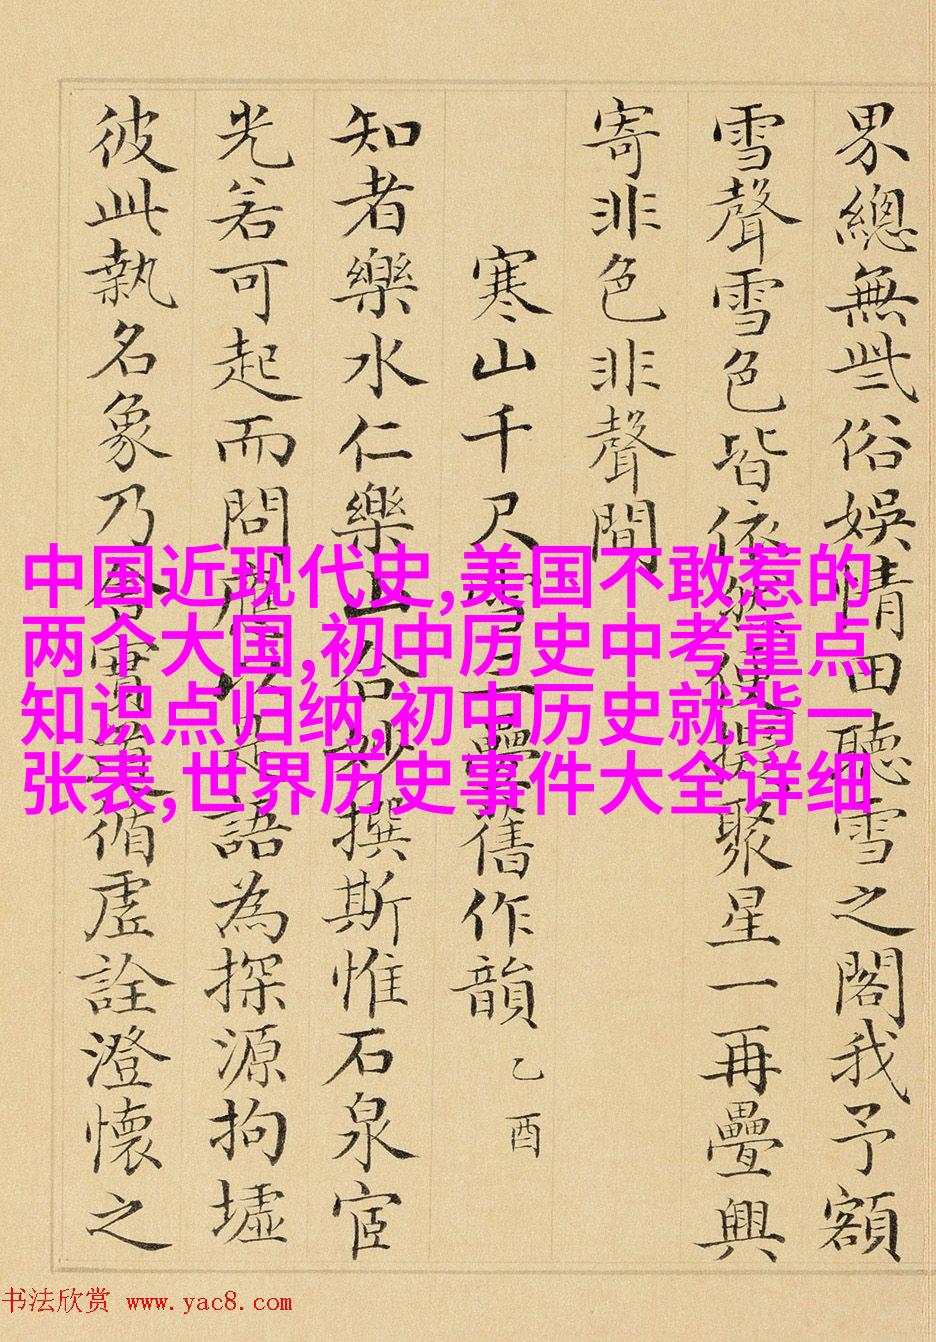 界總無些俗娛情田聽雪之閣我予額
雪聲雪色皆依然便擬聚星一再疊興
寄非色非聲間
寒山千尺雪三疊舊作韻 乙酉
知者樂水仁樂山合妙撰斯惟石泉宦
光若可起而問應以是語為探源拘墟
彼此執名象乃舍實循虛詮澄懷之
中国近现代史,美国不敢惹的
两个大国,初中历史中考重点
知识点归纳,初中历史就背一
张表,世界历史事件大全详细
书法欣赏 www.yac8.com